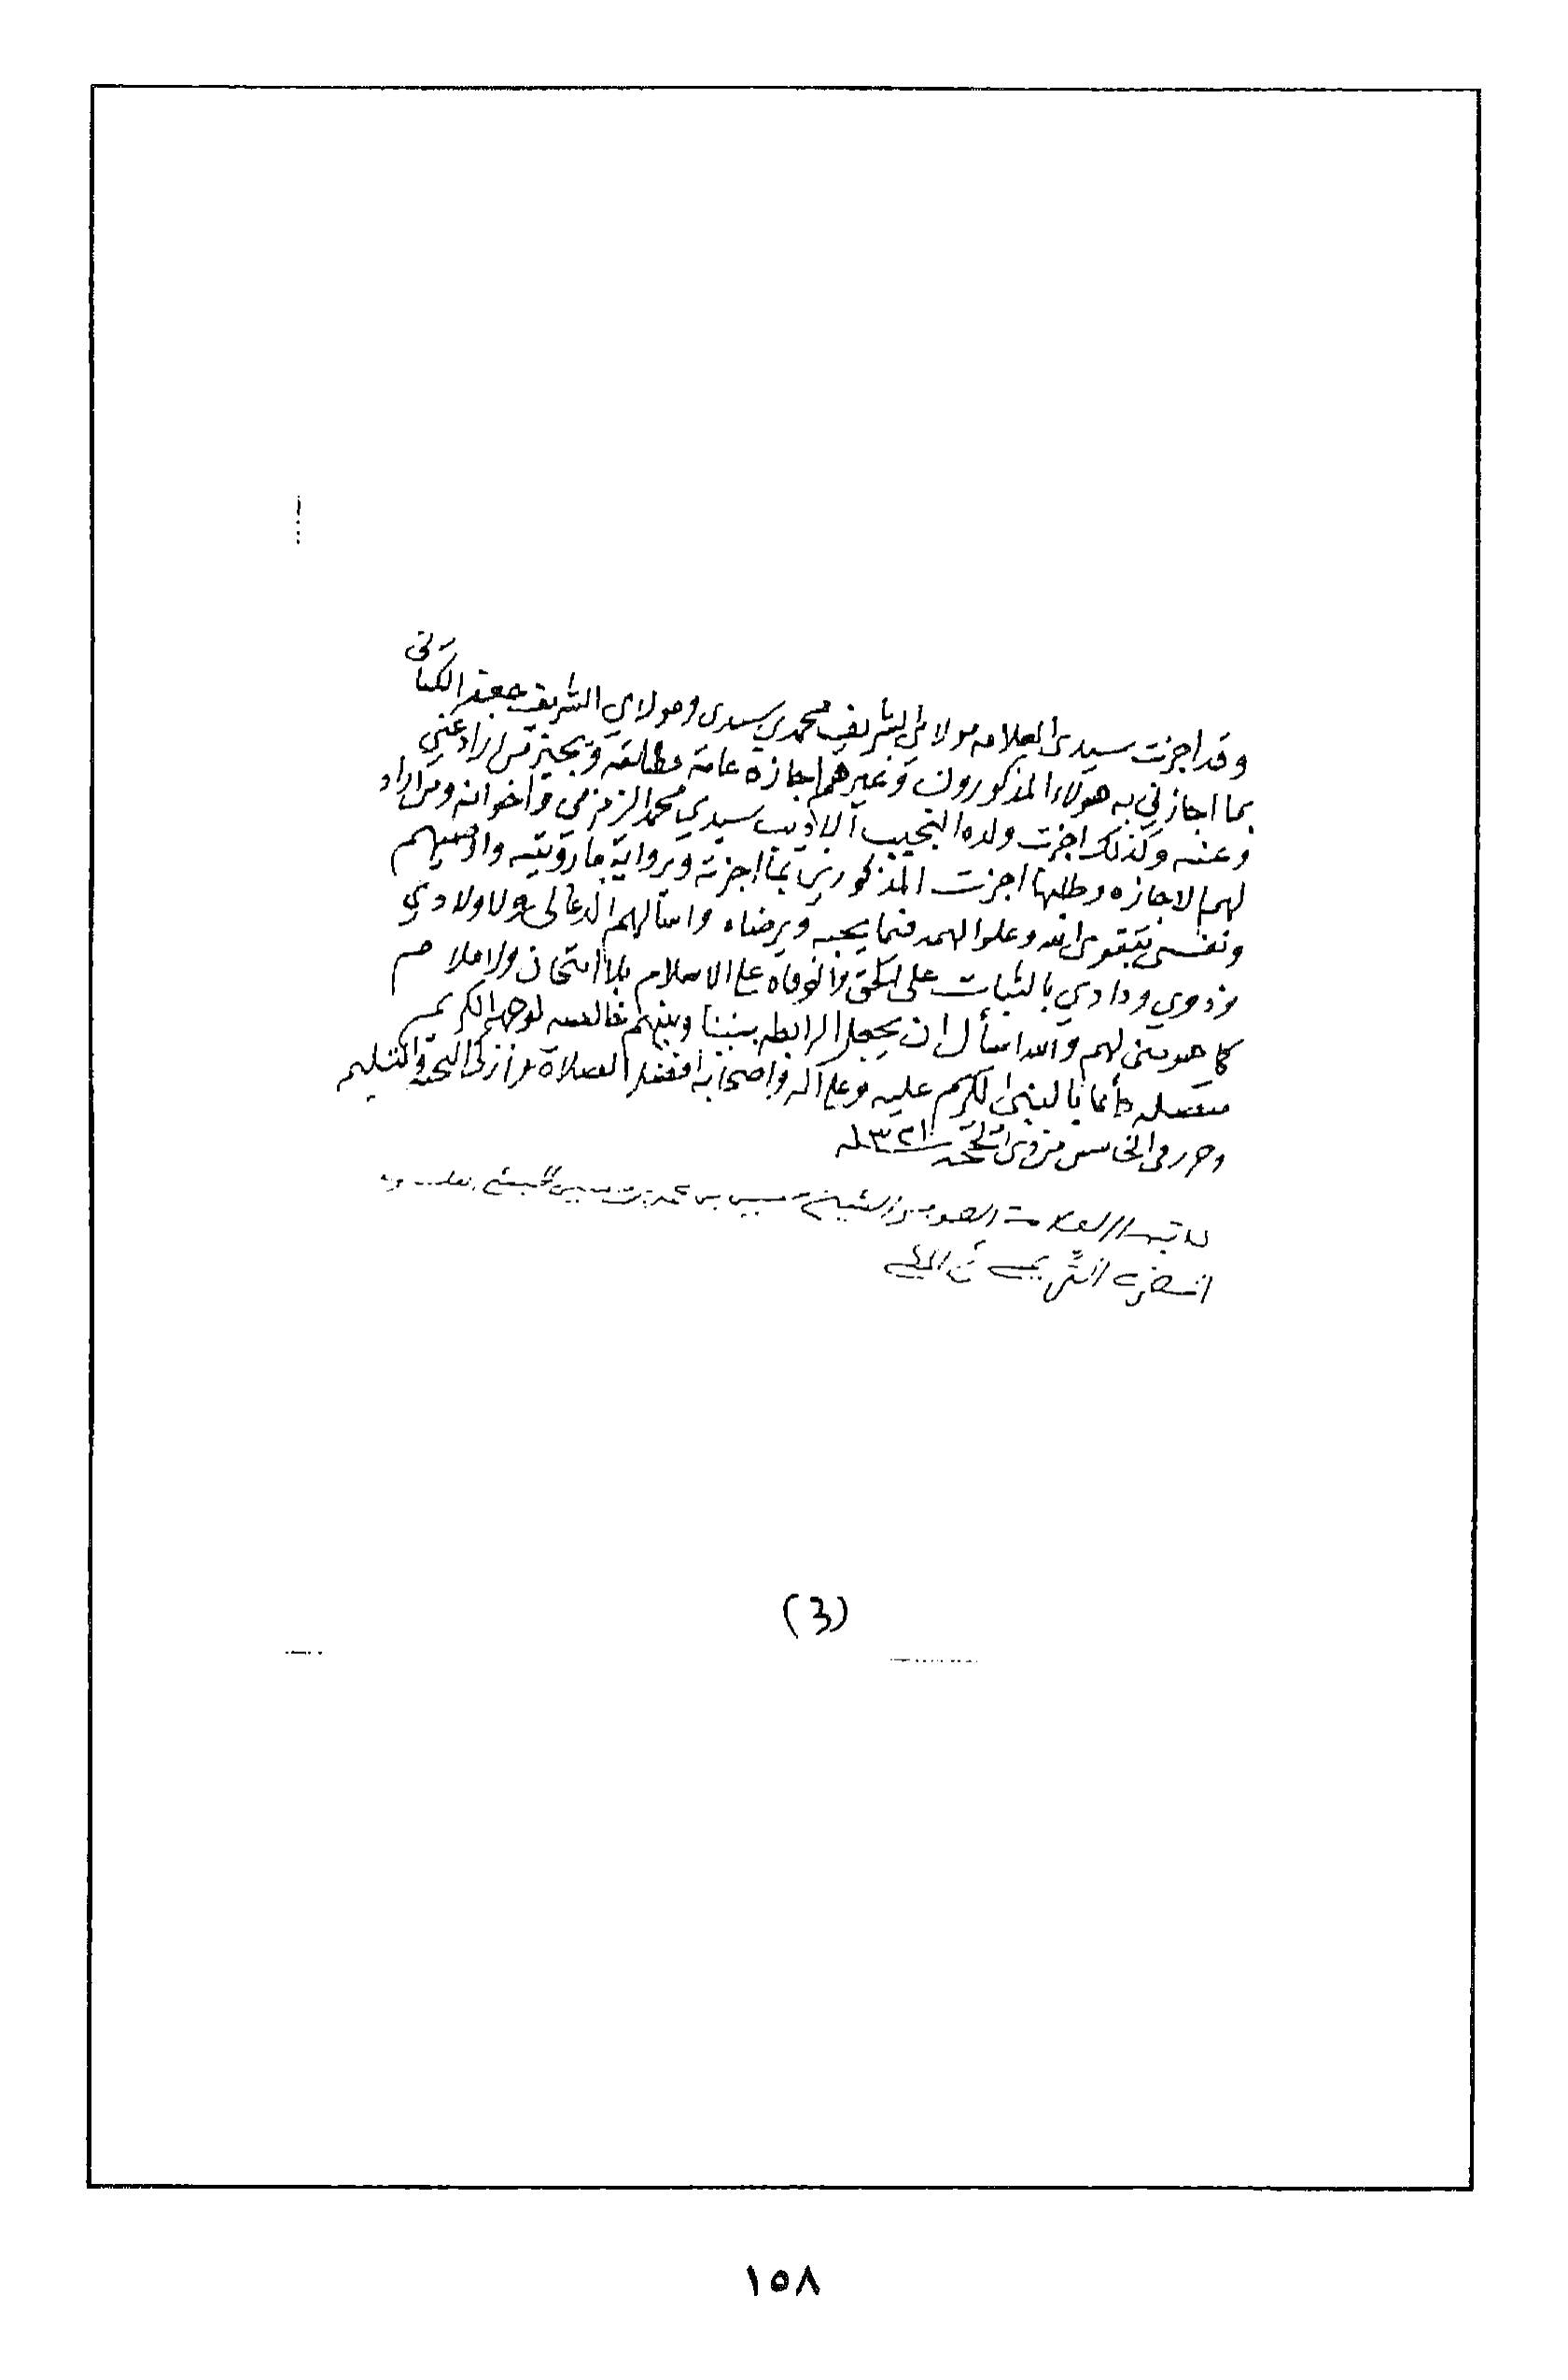 وقد اجزت سيدي العلامه مولاي الشريف محمد بن سيدي ومولاي الشريف جعفر الكتاني
بما اجازني به هولاء المذكورون وغيرهم اجازة عامة مطلقه ويجيز من اراد عني
وعنه وكذلك اجزت ولده النجيب الاديب سيدي محمد الزمزمي واخوانه ومن اراد
لهم الاجازه وطلبها اجزت المذكورين بما اجزته وبرواية ما رويته واوصيهم
ونفسي بتقوى الله وعلو الهمه فيما يحبه ويرضاه واسالهم الدعا لي ولاولادي
وذوي ودادي بالثبات على الحق والوفاه على الاسلام بلا امتحان ولا ملام
كما هو مني لهم والله اسأل ان يجعل الرابطه بيننا وبينهم خالصه لوجهه الكريم
متصله دائما بالنبي الكريم عليه وعلى آله واصحابه افضل الصلاة وازكى التحية والتسليم
وحرر في الخامس من ذي الحجه ١٣٢١ـه
العلامة الشيخ حسين بن محمد بن حسين الحبشي
(3)
١٥٨